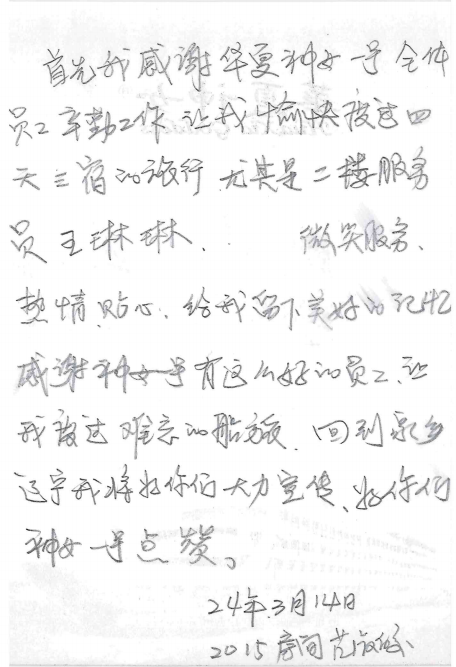 首先我感谢华夏神女一号全体
员工辛勤工作 让我愉快度过四
天三宿的旅行 尤其是二楼服务
员 王琳琳、 微笑服务、
热情、贴心、给我留下美好的记忆
感谢神女号有这么好的员工、让
我度过难忘的船旅、回到家乡
辽宁我将为你们大力宣传、为你们
神女一号点赞。
24年.3月14日
2015房间